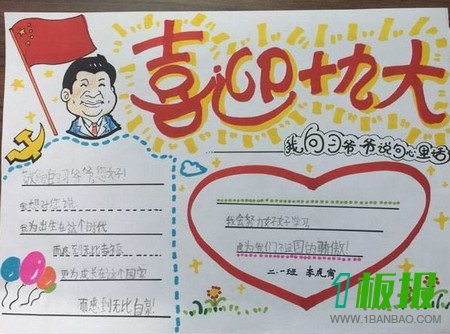 喜迎十九大
我向习爷爷说句心里话
敬爱的习爷爷您好!
我想对您说
我为出生在这个时代
而感到无比幸福
更为成长在这个国家
而感到无比自豪!
我会努力好好学习
成为我们祖国的骄傲!
二.一班 李虎寅
1板报
WWW.1BANBAO.COM